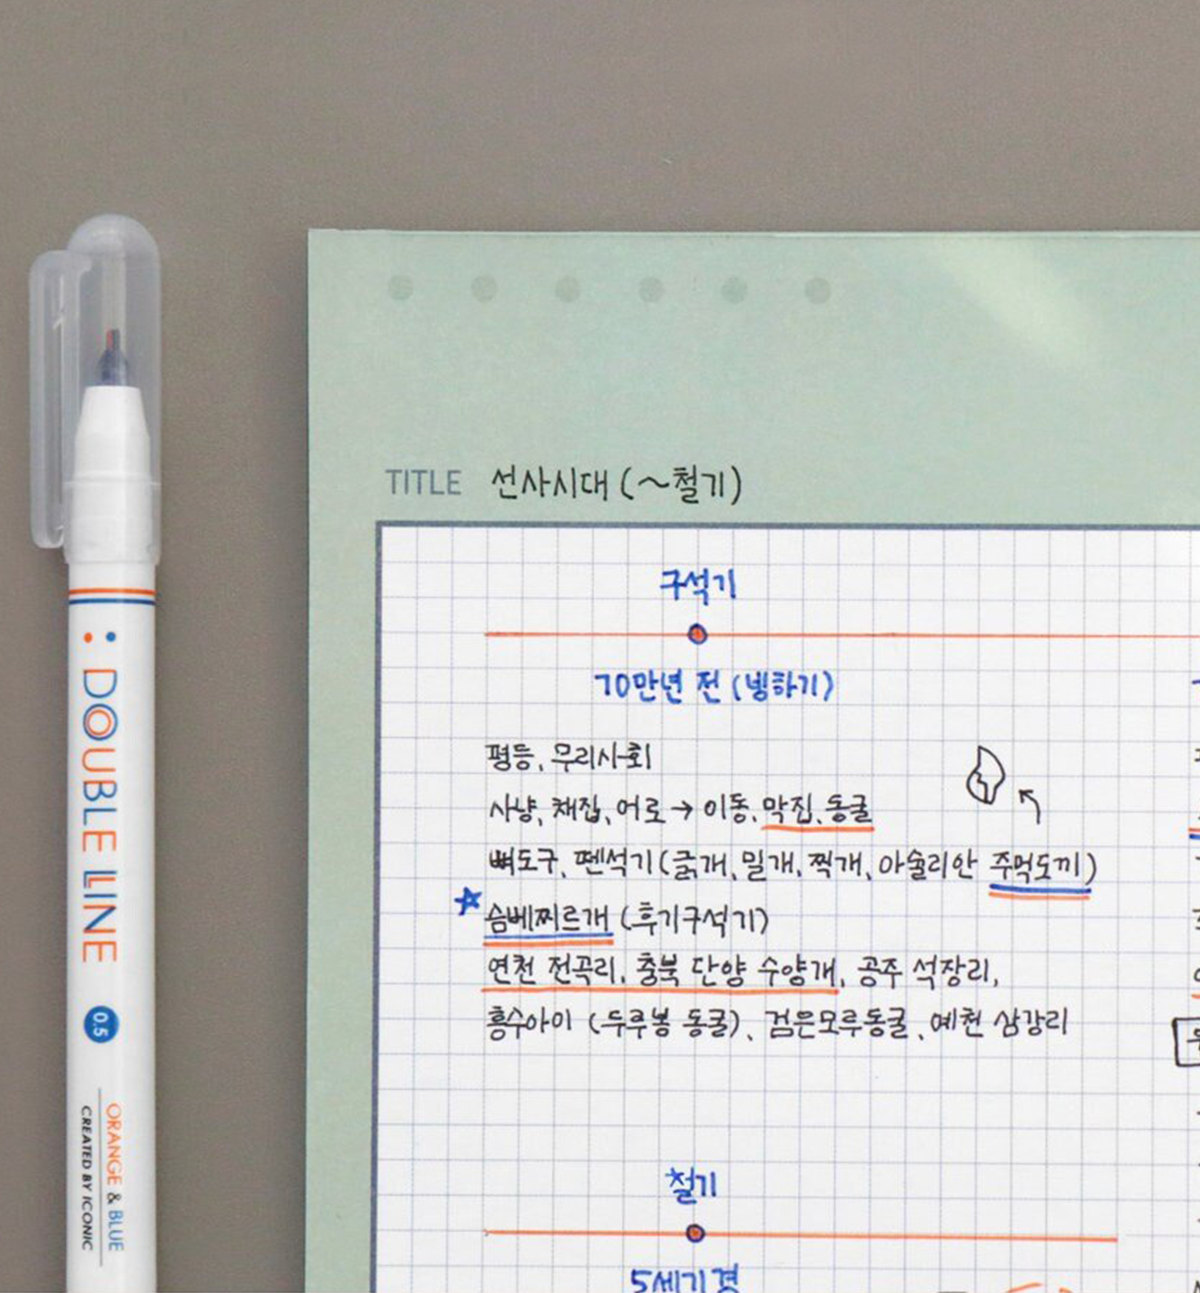 DOUBLE LINE
0.5
ORANGE & BLUE
CREATED BY ICONIC
TITLE 선사시대 (~철기)
구석기
70만년 전 (빙하기)
평등, 무리사회
사냥, 채집, 어로 → 이동, 막집, 동굴
뼈도구, 뗀석기 (긁개, 밀개, 찍개, 아슐리안 주먹도끼)
☆ 슴베찌르개 (후기구석기)
연천 전곡리, 충북 단양 수양개, 공주 석장리,
흥수아이 (두루봉 동굴), 검은모루동굴, 예천 삼강리
철기
5세기경